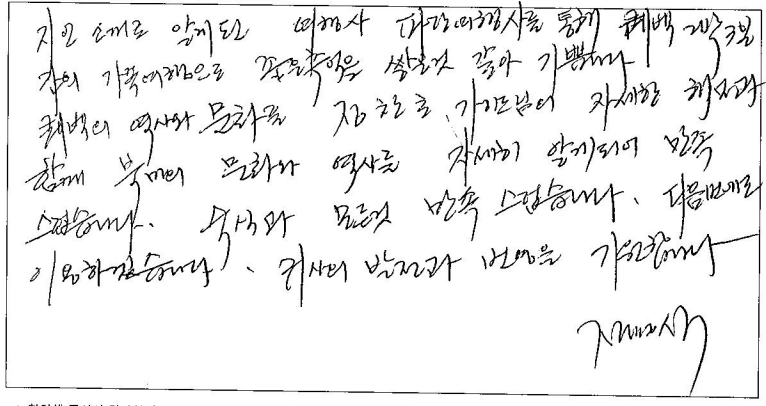 지인 소개로 알게된 여행사 파란여행사를 통해 퀘백 2박3일
간의 가족여행으로 좋은추억을 쌓은것 같아 기쁩니다
퀘백의 역사와 문화를 장천호 가이드님의 자세한 해설과
함께 북미의 문화와 역사를 자세히 알게되어 만족
스럽습니다. 숙식과 모든것 만족 스럽습니다. 다음번에도
이용하겠습니다. 귀사의 발전과 번영을 기원합니다